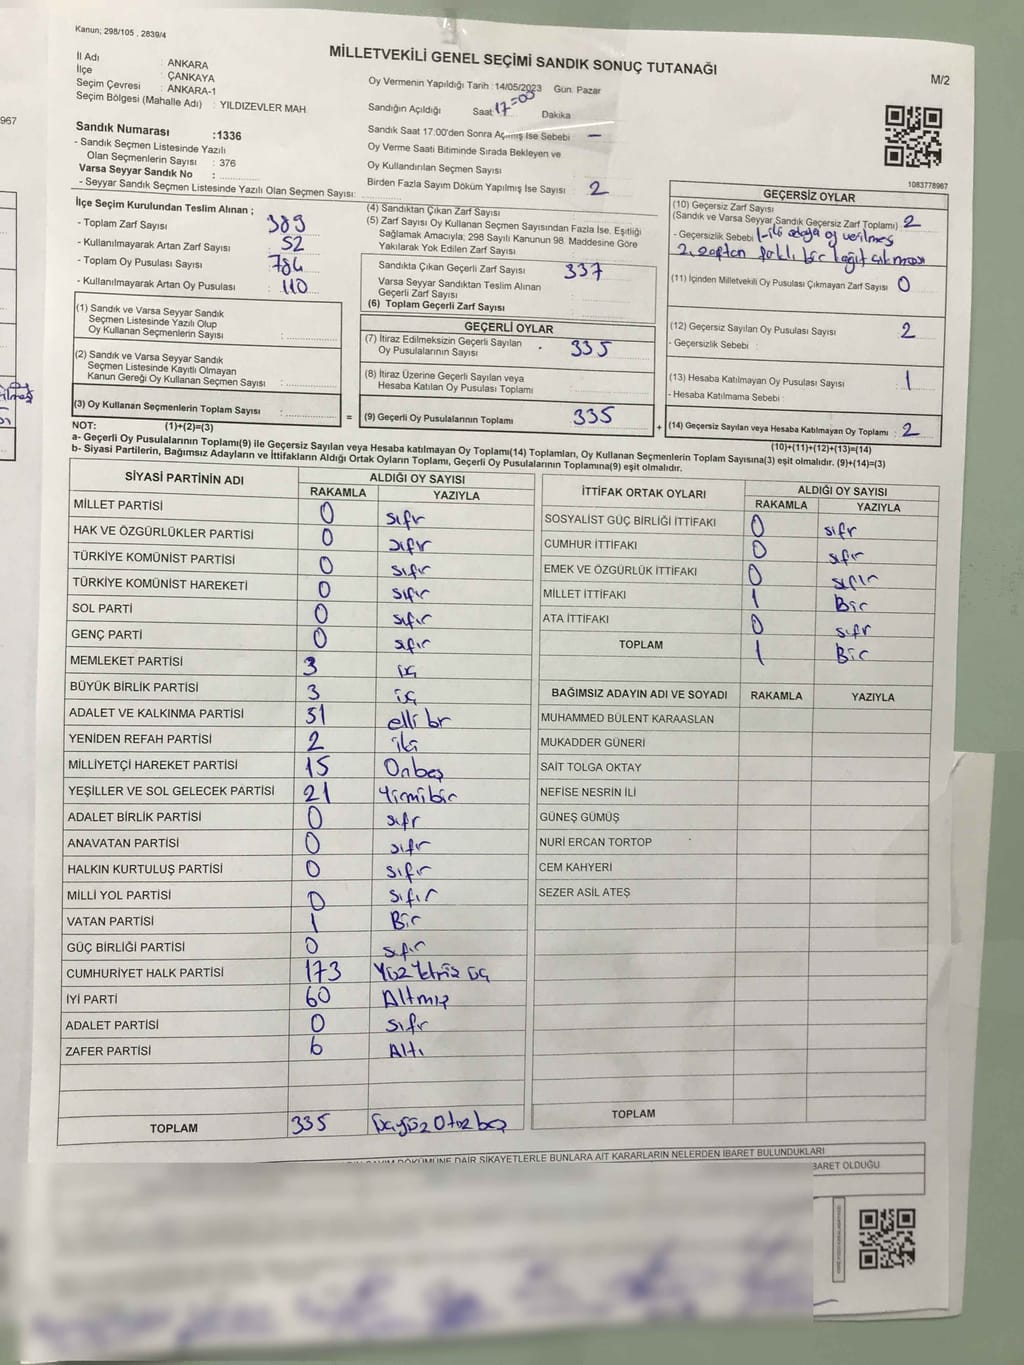 Kanun; 298/105 , 2839/4
MİLLETVEKİLİ GENEL SEÇİMİ SANDIK SONUÇ TUTANAĞI
M/2
İl Adı : ANKARA
İlçe : ÇANKAYA
Seçim Çevresi : ANKARA-1
Seçim Bölgesi (Mahalle Adı) : YILDIZEVLER MAH.
Sandık Numarası :1336
- Sandık Seçmen Listesinde Yazılı
Olan Seçmenlerin Sayısı : 376
Varsa Seyyar Sandık No :
- Seyyar Sandık Seçmen Listesinde Yazılı Olan Seçmen Sayısı:
Oy Vermenin Yapıldığı Tarih : 14/05/2023 Gün: Pazar
Sandığın Açıldığı Saat 17=00 Dakika
Sandık Saat 17:00'den Sonra Açılmış İse Sebebi —
Oy Verme Saati Bitiminde Sırada Bekleyen ve
Oy Kullandırılan Seçmen Sayısı
Birden Fazla Sayım Döküm Yapılmış İse Sayısı 2
1083778967
İlçe Seçim Kurulundan Teslim Alınan ;
- Toplam Zarf Sayısı 389
- Kullanılmayarak Artan Zarf Sayısı 52
- Toplam Oy Pusulası Sayısı 784
- Kullanılmayarak Artan Oy Pusulası 110
(1) Sandık ve Varsa Seyyar Sandık
Seçmen Listesinde Yazılı Olup
Oy Kullanan Seçmenlerin Sayısı :
(2) Sandık ve Varsa Seyyar Sandık
Seçmen Listesinde Kayıtlı Olmayan
Kanun Gereği Oy Kullanan Seçmen Sayısı :
(3) Oy Kullanan Seçmenlerin Toplam Sayısı :
(4) Sandıktan Çıkan Zarf Sayısı
(5) Zarf Sayısı Oy Kullanan Seçmen Sayısından Fazla İse, Eşitliği
Sağlamak Amacıyla; 298 Sayılı Kanunun 98. Maddesine Göre
Yakılarak Yok Edilen Zarf Sayısı
Sandıkta Çıkan Geçerli Zarf Sayısı 337
Varsa Seyyar Sandıktan Teslim Alınan
Geçerli Zarf Sayısı
(6) Toplam Geçerli Zarf Sayısı
GEÇERLİ OYLAR
(7) İtiraz Edilmeksizin Geçerli Sayılan
Oy Pusulalarının Sayısı 335
(8) İtiraz Üzerine Geçerli Sayılan veya
Hesaba Katılan Oy Pusulası Toplamı
= (9) Geçerli Oy Pusulalarının Toplamı 335
GEÇERSİZ OYLAR
(10) Geçersiz Zarf Sayısı
(Sandık ve Varsa Seyyar Sandık Geçersiz Zarf Toplamı) 2
- Geçersizlik Sebebi 1-iki adaya oy verilmiş
2. zarftan farklı bir kağıt çıkması
(11) İçinden Milletvekili Oy Pusulası Çıkmayan Zarf Sayısı 0
(12) Geçersiz Sayılan Oy Pusulası Sayısı 2
- Geçersizlik Sebebi :
(13) Hesaba Katılmayan Oy Pusulası Sayısı 1
- Hesaba Katılmama Sebebi :
+ (14) Geçersiz Sayılan veya Hesaba Katılmayan Oy Toplamı : 2
NOT: (1)+(2)=(3)
(10)+(11)+(12)+(13)=(14)
a- Geçerli Oy Pusulalarının Toplamı(9) ile Geçersiz Sayılan veya Hesaba katılmayan Oy Toplamı(14) Toplamları, Oy Kullanan Seçmenlerin Toplam Sayısına(3) eşit olmalıdır. (9)+(14)=(3)
b- Siyasi Partilerin, Bağımsız Adayların ve İttifakların Aldığı Ortak Oyların Toplamı, Geçerli Oy Pusulalarının Toplamına(9) eşit olmalıdır.
SİYASİ PARTİNİN ADI ALDIĞI OY SAYISI
RAKAMLA YAZIYLA
MİLLET PARTİSİ 0 sıfır
HAK VE ÖZGÜRLÜKLER PARTİSİ 0 sıfır
TÜRKİYE KOMÜNİST PARTİSİ 0 sıfır
TÜRKİYE KOMÜNİST HAREKETİ 0 sıfır
SOL PARTİ 0 sıfır
GENÇ PARTİ 0 sıfır
MEMLEKET PARTİSİ 3 üç
BÜYÜK BİRLİK PARTİSİ 3 üç
ADALET VE KALKINMA PARTİSİ 51 elli bir
YENİDEN REFAH PARTİSİ 2 iki
MİLLİYETÇİ HAREKET PARTİSİ 15 Onbeş
YEŞİLLER VE SOL GELECEK PARTİSİ 21 Yirmibir
ADALET BİRLİK PARTİSİ 0 sıfır
ANAVATAN PARTİSİ 0 sıfır
HALKIN KURTULUŞ PARTİSİ 0 sıfır
MİLLİ YOL PARTİSİ 0 sıfır
VATAN PARTİSİ 1 Bir
GÜÇ BİRLİĞİ PARTİSİ 0 sıfır
CUMHURİYET HALK PARTİSİ 173 Yüz Yetmiş üç
İYİ PARTİ 60 Altmış
ADALET PARTİSİ 0 sıfır
ZAFER PARTİSİ 6 Altı
TOPLAM 335 üçyüz Otuz beş
İTTİFAK ORTAK OYLARI ALDIĞI OY SAYISI
RAKAMLA YAZIYLA
SOSYALİST GÜÇ BİRLİĞİ İTTİFAKI 0 sıfır
CUMHUR İTTİFAKI 0 sıfır
EMEK VE ÖZGÜRLÜK İTTİFAKI 0 sıfır
MİLLET İTTİFAKI 1 Bir
ATA İTTİFAKI 0 sıfır
TOPLAM 1 Bir
BAĞIMSIZ ADAYIN ADI VE SOYADI RAKAMLA YAZIYLA
MUHAMMED BÜLENT KARAASLAN
MUKADDER GÜNERİ
SAİT TOLGA OKTAY
NEFİSE NESRİN İLİ
GÜNEŞ GÜMÜŞ
NURİ ERCAN TORTOP
CEM KAHYERİ
SEZER ASİL ATEŞ
TOPLAM
DÖKÜMÜNE DAİR ŞİKAYETLERLE BUNLARA AİT KARARLARIN NELERDEN İBARET BULUNDUKLARI
BARET OLDUĞU
967